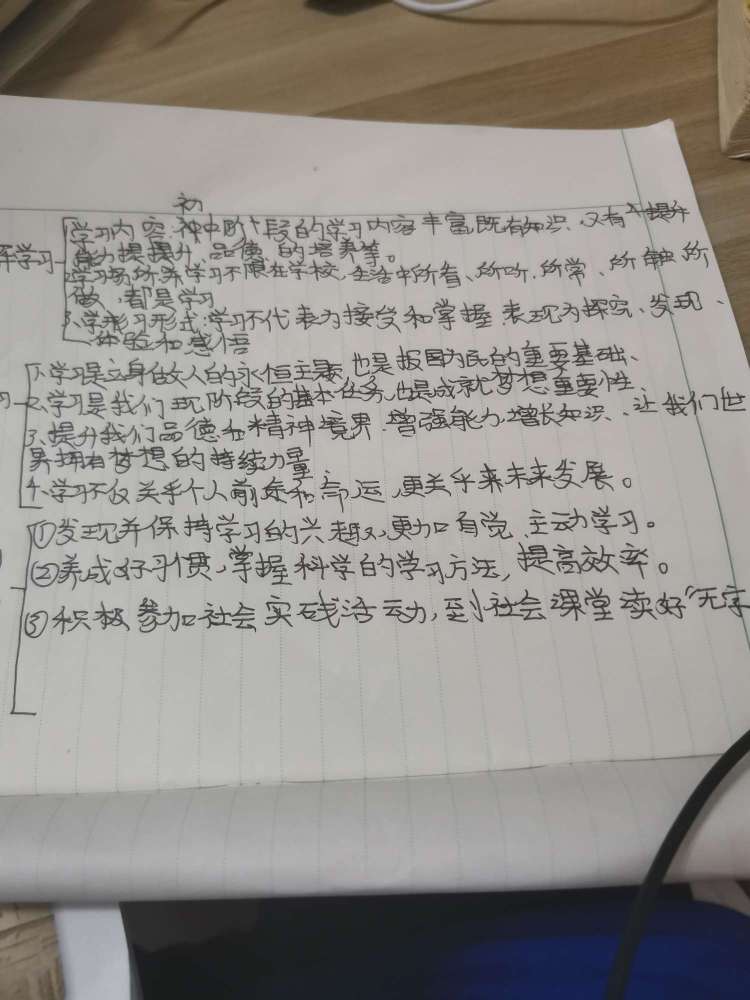 初
学习内容:初中阶段的学习内容丰富,既有知识、又有提升
能力提升、品德的培养等。
学习不限在学校,生活中所看、所听、所常、所触、所
做,都是学习
3、学习形式:学习不代表为接受和掌握,表现为探究、发现、
体验和感悟
1、学习是立身做人的永恒主题,也是报国为民的重要基础、
2、学习是我们现阶段的基本任务,也是成就梦想重要性
3、提升我们品德和精神境界.增强能力,增长知识、让我们世
界拥有梦想的持续力量
4、学习不仅关乎个人前途和命运,更关乎来未来发展。
①发现并保持学习的兴趣,更加自觉、主动学习。
②养成好习惯,掌握科学的学习方法,提高效率。
③积极参加社会实践活动,到社会课堂读好“无字